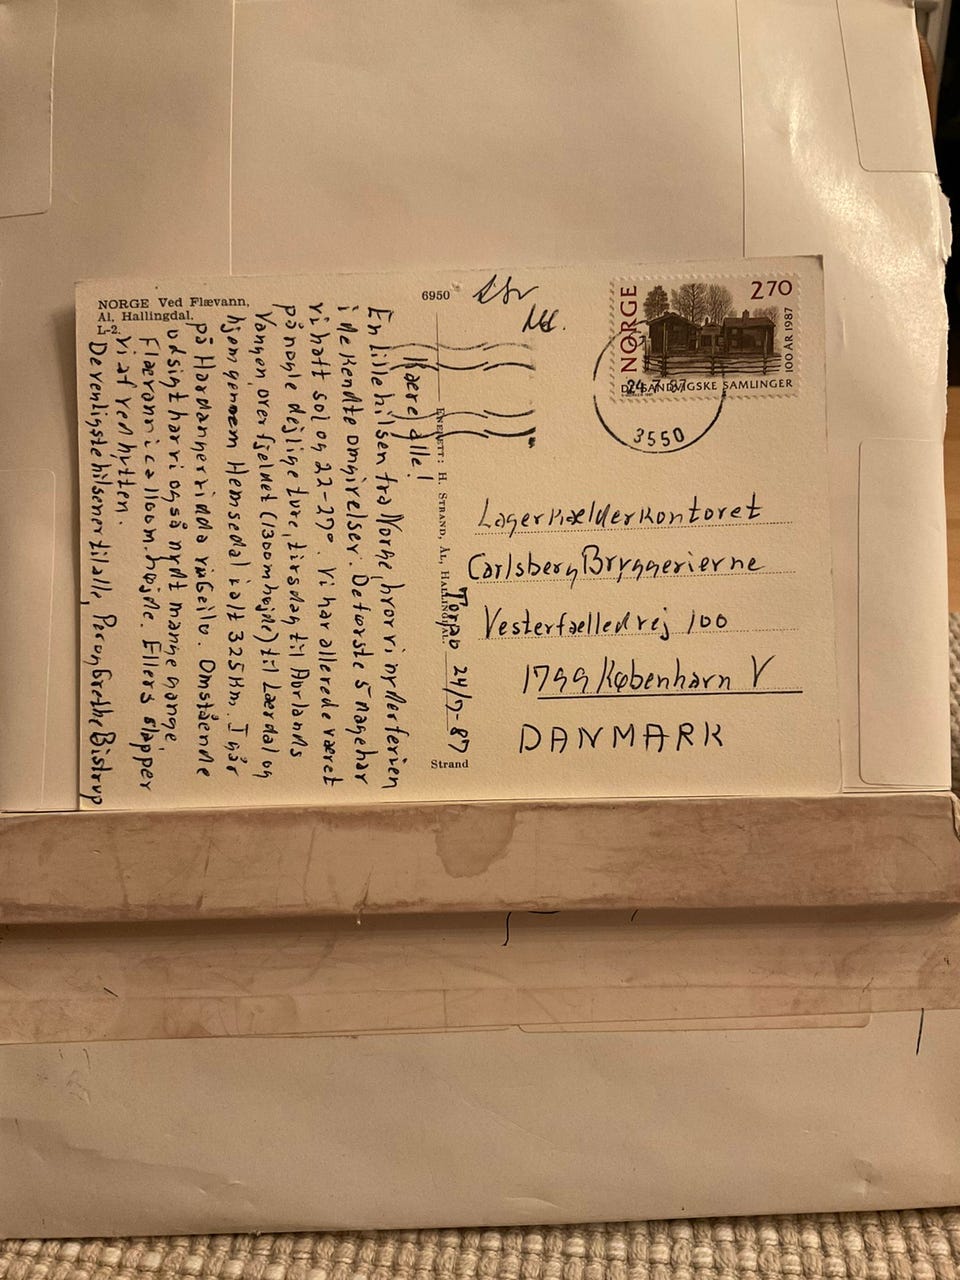 NORGE Ved Flævann,
Al, Hallingdal.
L-2.
6950
Torpo 24/7-87
Kære alle!
En lille hilsen fra Norge, hvor vi nyder ferien
i de kendte omgivelser. De første 5 dage har
vi haft sol og 22-27°. Vi har allerede været
på nogle dejlige ture, tirsdag til Aurlands
Vangen, over fjeldet (1300m højde) til Lærdal og
hjem gennem Hemsedal i alt 325 km. I går
på Hardangervidda via Geilo. Omstående
udsigt har vi også nydt mange gange,
Flævann i ca 1100m. højde. Ellers slapper
vi af ved hytten.
De venligste hilsener til alle, Per og Grethe Bistrup
ENERETT: H. STRAND, ÅL, HALLINGDAL.
Strand
NORGE
2 70
DE SANDVIGSKE SAMLINGER
100 ÅR 1987
24.7.87
3550
Lagerkælderkontoret
Carlsberg Bryggerierne
Vesterfælledvej 100
1799 København V
DANMARK